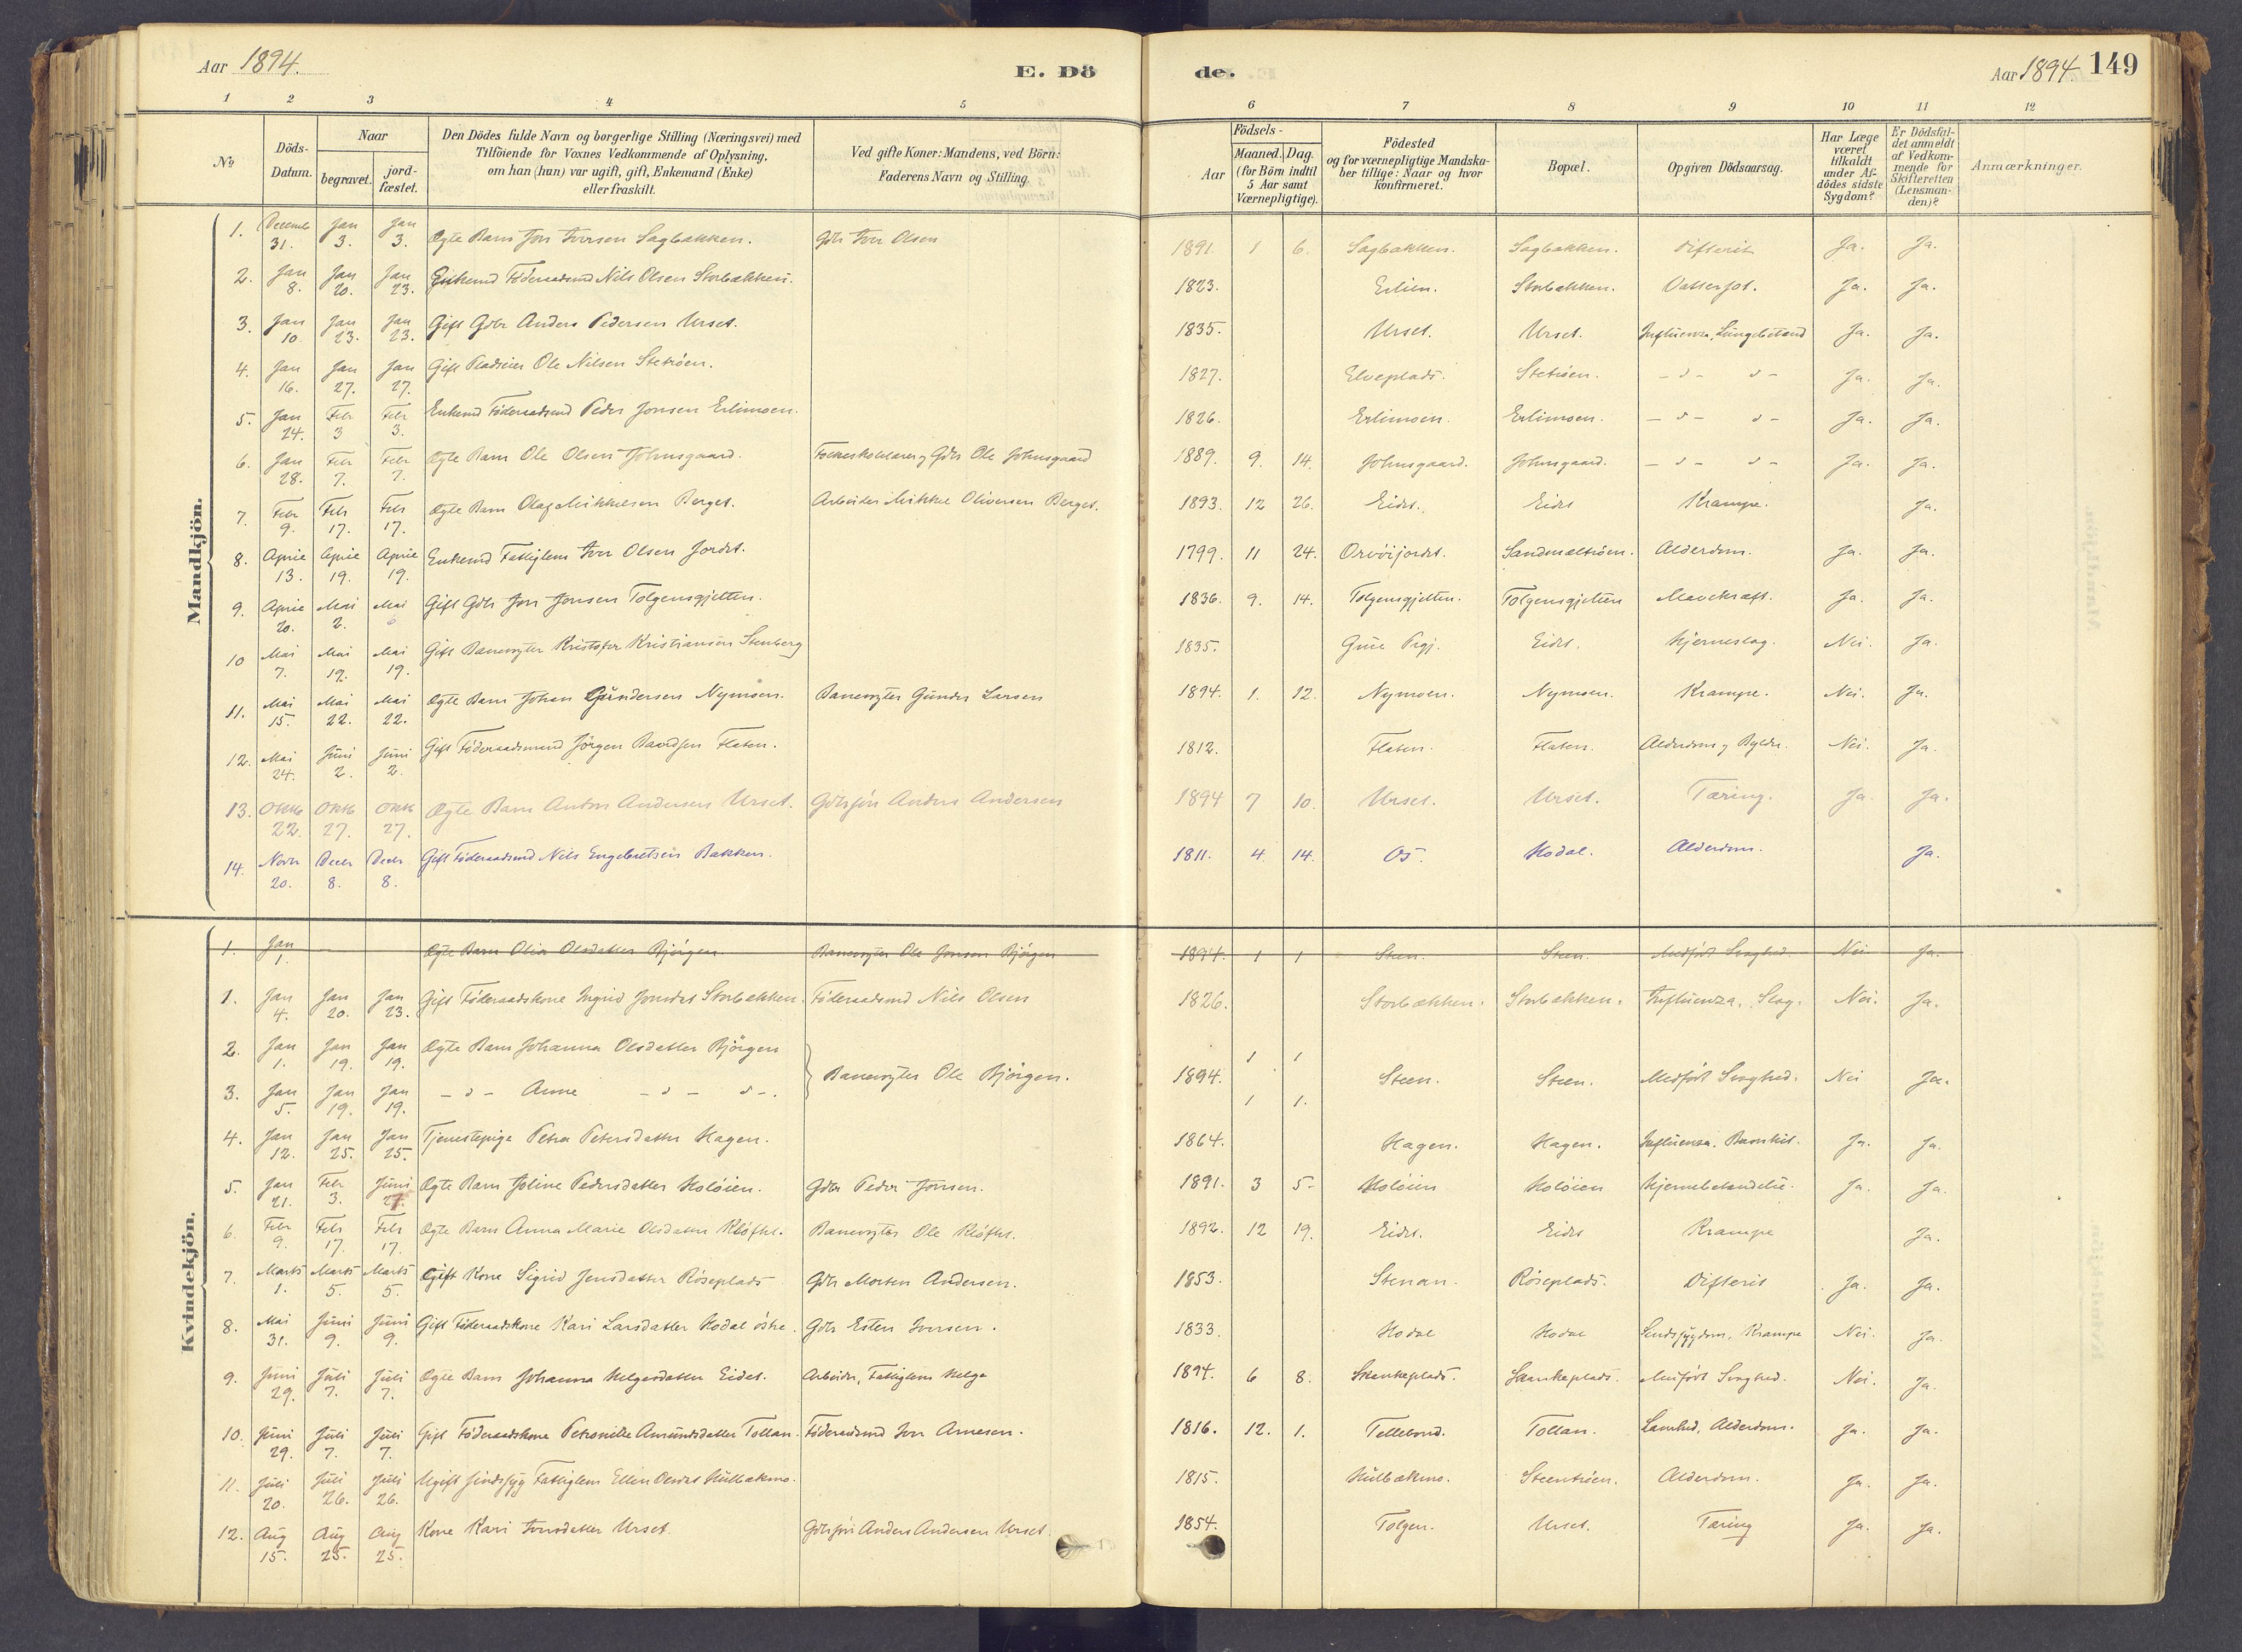 Aar 1894. E. Dö de. Aar 1894 149
1 2 3 4 5 6 7 8 9 10 11 12
No
Döds-Datum.
Naar
begravet.
jord-fæstet.
Den Dödes fulde Navn og borgerlige Stilling (Næringsvei) med
Tilföiende for Voxnes Vedkommende af Oplysning,
om han (hun) var ugift, gift, Enkemand (Enke)
eller fraskilt.
Ved gifte Koner: Mandens, ved Börn:
Faderens Navn og Stilling.
Födsels-
Aar
Maaned. Dag.
(for Börn indtil
5 Aar samt
Værnepligtige).
Födested
og for værnepligtige Mandska-
ber tillige: Naar og hvor
konfirmeret.
Bopæl.
Opgiven Dödsaarsag.
Har Læge
været
tilkaldt
under Af-
dödes sidste
Sygdom?
Er Dödsfal-
det anmeldt
af Vedkom-
mende for
Skifteretten
(Lensman-
den)?
Anmærkninger.
Mandkjön.
1. Decemb 31. Jan 3. Jan 3. Ægte Barn Jon Iversen Sagbakken. Gbr Iver Olsen 1891. 1 6. Sagbakken. Sagbakken. Difterit Ja. Ja.
2. Jan 8. Jan 20. Jan 23. Enkemd Föderaadsmd Nils Olsen Storbækken. 1823. Erlien. Storbækken. Vattersot. Ja. Ja.
3. Jan 10. Jan 23. Jan 23. Gift Gbr Anders Pedersen Urset. 1835. Urset. Urset. Influenza, Lungebetænd Ja. Ja.
4. Jan 16. Jan 27. Jan 27. Gift Pladseier Ole Nilsen Stetröen. 1827. Elveplads. Stetröen. - d - d - Ja. Ja.
5. Jan 24. Febr 3 Febr 3. Enkemd Föderaadsmd Peder Jonsen Erlimoen. 1826. Erlimoen. Erlimoen. - d - d - Ja. Ja.
6. Jan 28. Febr 7. Febr 7. Ægte Barn Ole Olsen Johnsgaard. Folkeskolelærer og Gbr Ole Johnsgaard 1889. 9. 14. Johnsgaard. Johnsgaard. - d - d - Ja. Ja.
7. Febr 9. Febr 17. Febr 17. Ægte Barn Olaf Mikkelsen Berget. Arbeider Mikkel Oliversen Berget. 1893. 12 26. Eidet. Eidet Krampe. Ja.
8. April 13. April 19. April 19. Enkemd Fattiglem Iver Olsen Jordet. 1799. 11 24. Orvöijordet. Sandmæltröen. Alderdom. Ja. Ja.
9. April 20. Mai 2. Mai 6 Gift Gbr Jon Jonsen Tolgensgjelten. 1836. 9. 14. Tolgensgjelten. Tolgensgjelten Mavekræft. Ja. Ja.
10 Mai 7. Mai 19. Mai 19. Gift Banevogter Kristofer Kristiansen Stenberg 1835. Grue Prgj. Eidet. Hjerneslag. Nei. Ja.
11. Mai 15. Mai 22. Mai 22. Ægte Barn Johan Gundersen Nymoen. Banevogter Gunder Larsen 1894. 1. 12. Nymoen. Nymoen. Krampe. Nei. Ja.
12. Mai 24. Juni 2. Juni 2. Gift Föderaadsmand Jörgen Baardsen Flaten. 1812. Flaten. Flaten. Alderdom og Bylder. Nei. Ja.
13. Oktb 22. Oktb 27. Oktb 27. Ægte Barn Anton Andersen Urset. Gbrsön Anders Andersen 1894 7 10. Urset. Urset. Tæring. Ja. Ja.
14. Novbr 20. Decbr 8. Decbr 8. Gift Föderaadsmd Nils Engebretsen Bakken. 1811. 4. 14. Os. Hodal. Alderdom. Ja.
Kvindekjön.
1. Jan 1. Ægte Barn Olia Olsdatter Bjørgen Banevogter Ole Jonsen Bjørgen 1894. 1 1 Steen. Steen. Medfödt Svaghed. Nei Ja.
1. Jan 4. Jan 20. Jan 23. Gift Föderaadskone Ingrid Jonsdat Storbækken. Föderaadsmd Nils Olsen 1826. Storbækken. Storbækken. Influenza. Slag. Nei. Ja.
2. Jan 1. Jan 19. Jan 19. Ægte Barn Johanna Olsdatter Bjørgen 1 1
Banevogter Ole Bjørgen. 1894. Steen. Steen. Medfödt Svaghed. Nei Ja.
3. Jan 5. Jan 19. Jan 19. - d - Anne - d - d -. 1 1.
4. Jan 12. Jan 25. Jan 25. Tjenestepige Petra Petersdatter Hagen. 1864. Hagen. Hagen. Influenza. Bronkit. Ja. Ja.
5. Jan 21. Febr 3. Juni 27. Ægte Barn Joline Pedersdatter Holöien. Gbr Peder Jonsen. 1891. 3 5- Holöien Holöien Hjernebetændelse. Ja. Ja.
6. Febr 9. Febr 17. Febr 17. Ægte Barn Anna Marie Olsdatter Klöfthe. Banevogter Ole Klöfthe. 1892. 12 19. Eidet. Eidet Krampe Ja.
7. Marts 1. Marts 5. Marts 5. Gift Kone Sigrid Jensdatter Röseplads Gbr Morten Andersen. 1853. Stenan. Röseplads. Difterit Ja. Ja.
8. Mai 31. Juni 9. Juni 9. Gift Föderaadskone Kari Larsdatter Hodal östre. Gbr Esten Iversen. 1833. Hodal Hodal Sindssygdom, Krampe Nei. Ja.
9. Juni 29. Juli 7. Juli 7. Ægte Barn Johanna Helgesdatter Eidet. Arbeider, Fattiglem Helge 1894. 6 8. Skankeplads. Skankeplads. Medfödt Svaghed. Nei. Ja.
10. Juni 29. Juli 7. Juli 7. Gift Föderaadskone Petronille Amundsdatter Tollan. Föderaadsmd Iver Arnesen. 1816. 12. 1. Tellebond. Tollan. Lamhed, Alderdom. Ja. Ja.
11. Juli 20. Juli 26. Juli 26. Ugift sindssyg Fattiglem Ellen Olsdat Hulbækmo. 1815. Hulbækmo. Steentröen. Alderdom. Ja. Ja.
12. Aug 15. Aug 25. Aug 25. Kone Kari Iversdatter Urset. Gbrsön Anders Andersen Urset. 1854. Tolgen. Urset. Tæring Ja. Ja.